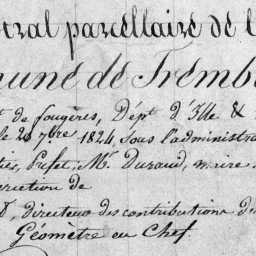 tral parcellaire de l
mune de Trembl
t de fougères, Dép.t d'Ille &
le 20 7bre 1824, sous l'administra
Préfet, Mr. Duraud, maire
rection de
directeur des contributions d
Géomètre en Chef